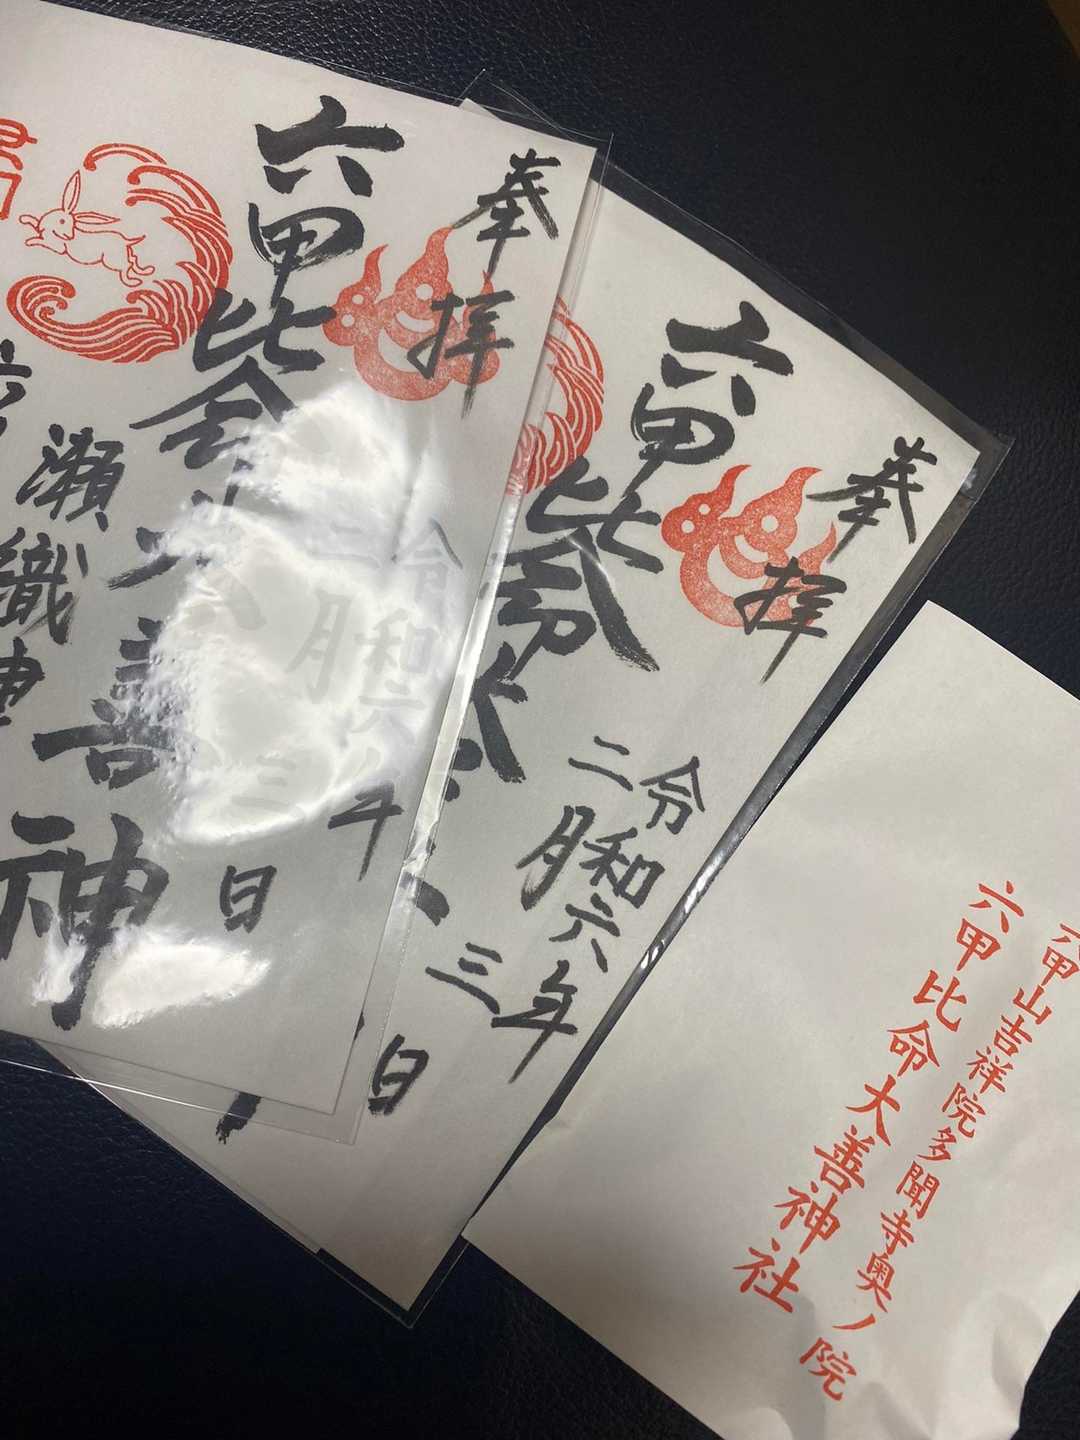 奉拝
六甲比命大善神
瀬織
令和六年
二月三日
奉拝
六甲比命大
令和六年
二月三日
六甲山吉祥院多聞寺奥ノ院
六甲比命大善神社